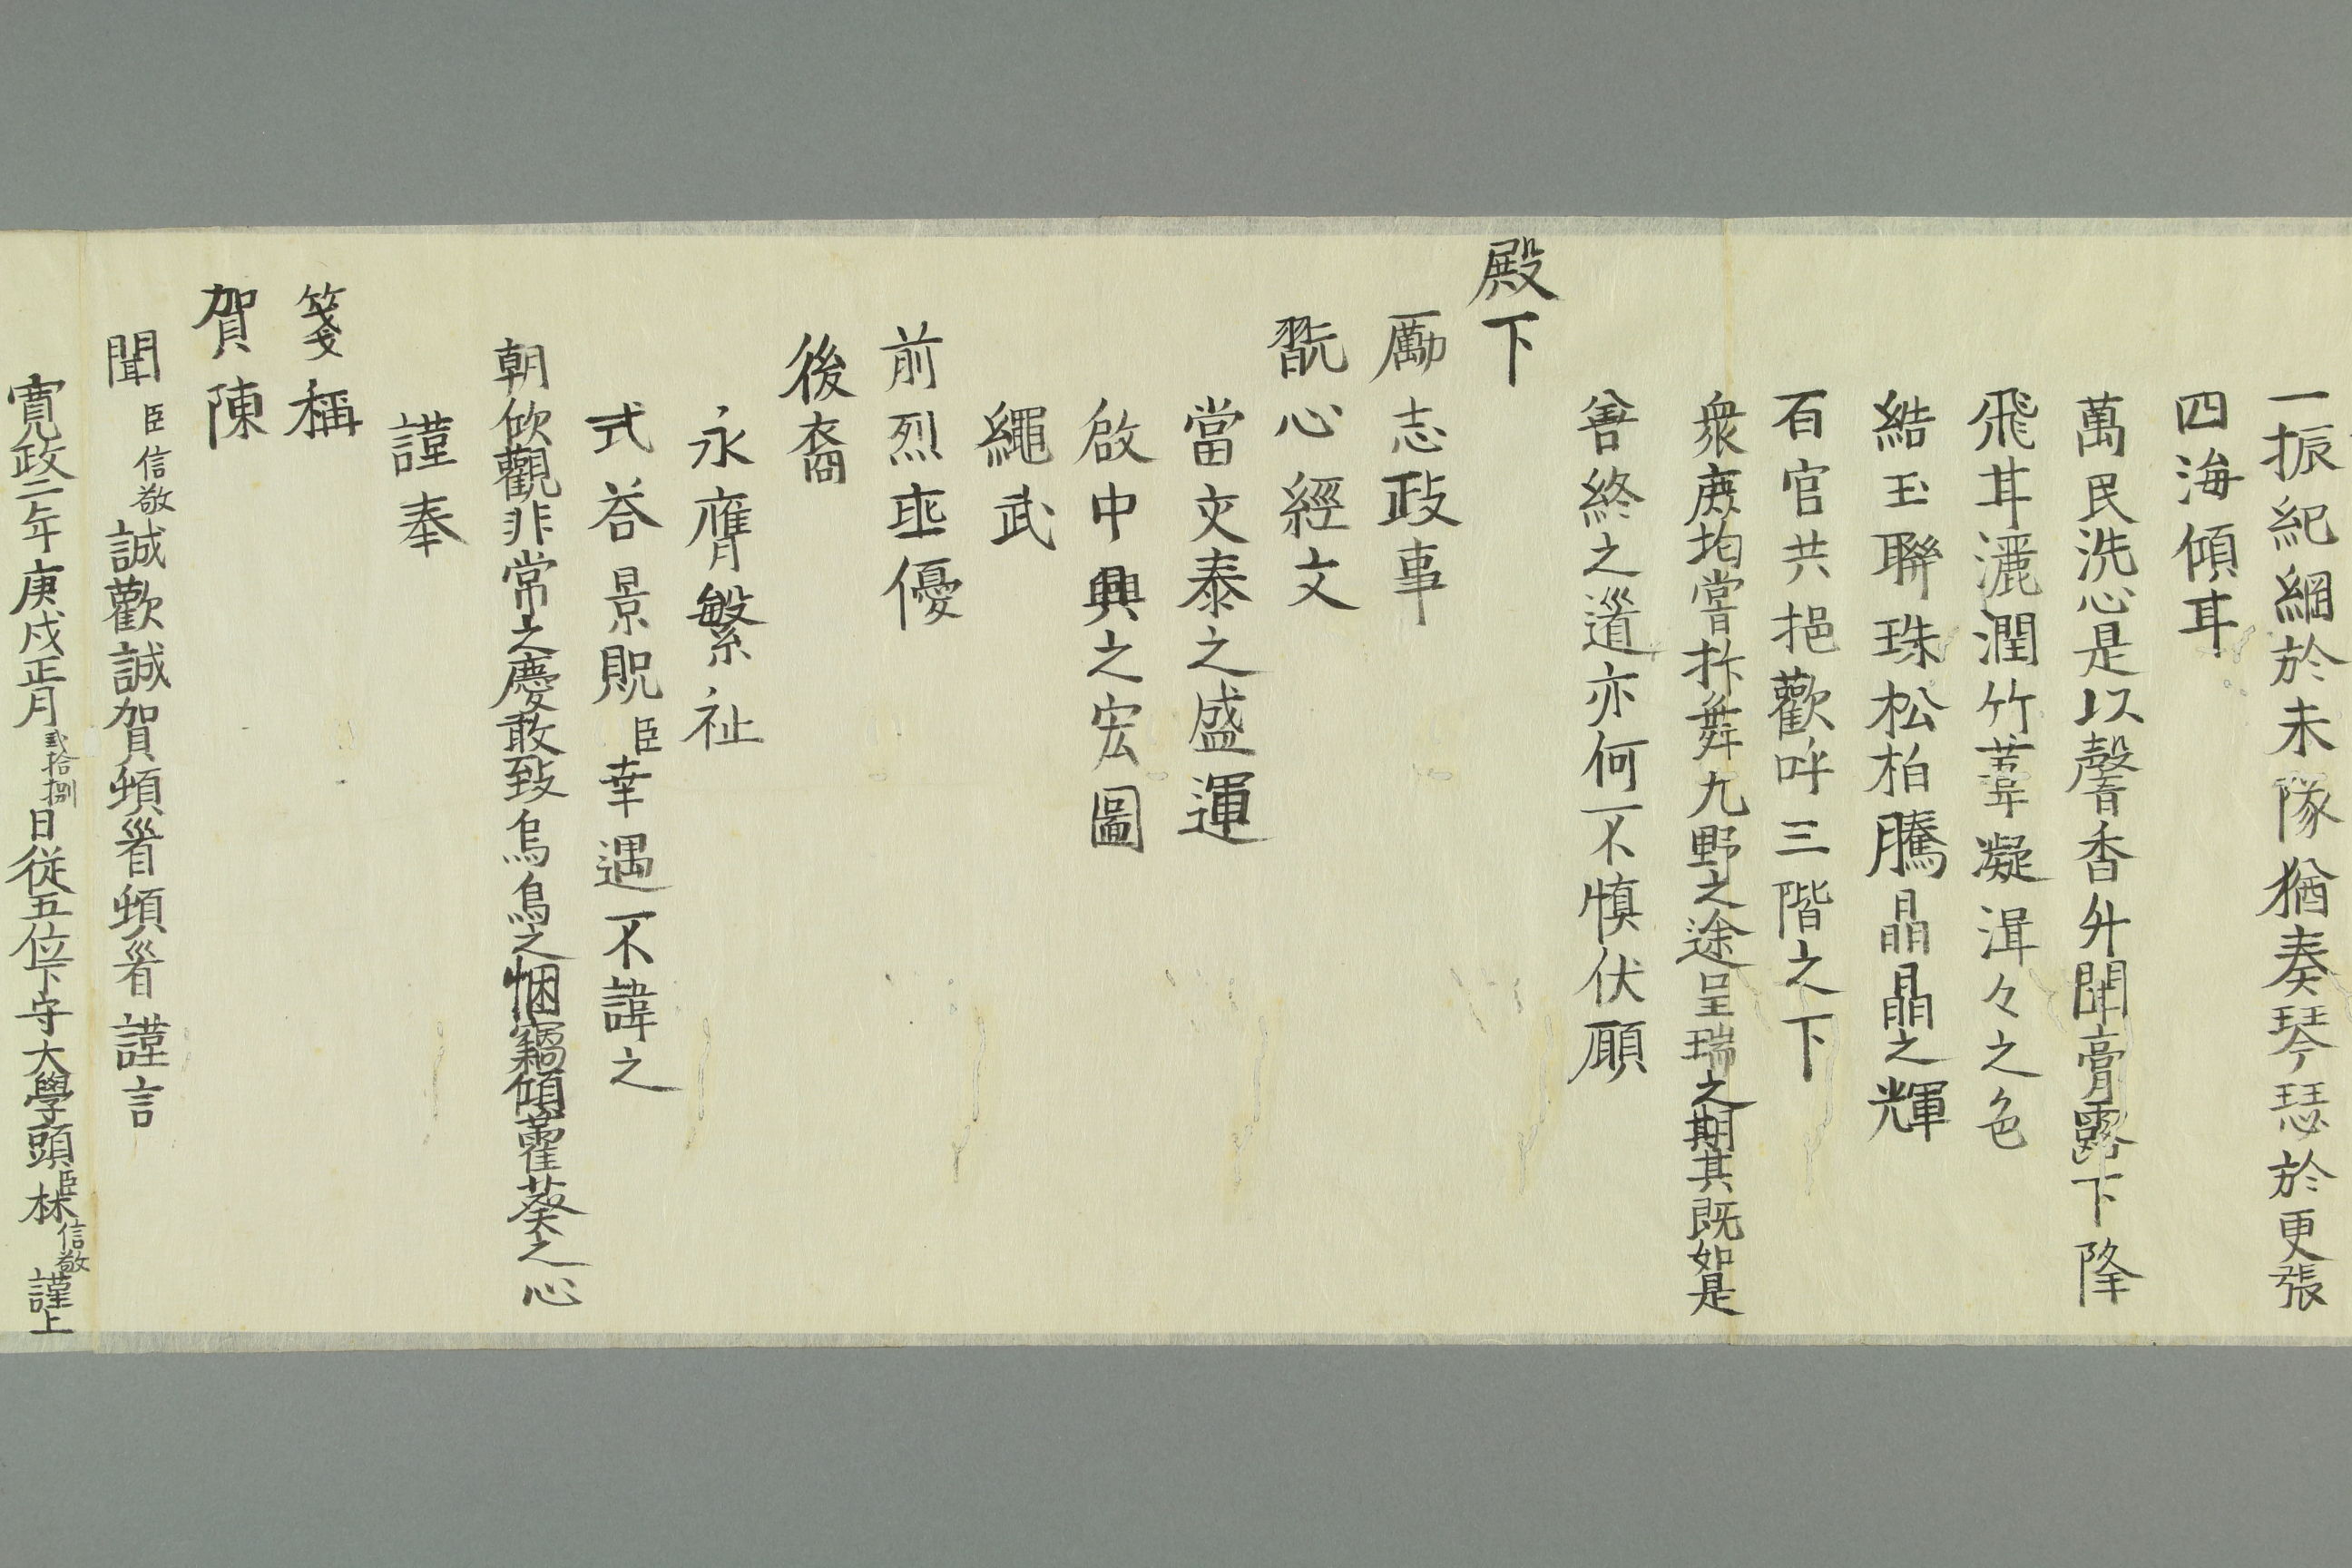 一振紀綱於未隊猶奏琴瑟於更張
四海傾耳
萬民洗心是以馨香升聞膏露下降
飛甘灑潤竹葦凝湒々之色
結玉聯珠松柏騰晶晶之輝
百官共挹歡呼三階之下
衆庶均嘗抃舞九野之途呈瑞之期其既如是
善終之道亦何不慎伏願
殿下
勵志政事
翫心經文
當交泰之盛運
啟中興之宏圖
繩武
前烈垂優
後裔
永膺繁祉
式荅景貺臣幸遇不諱之
朝欣觀非常之慶敢致烏鳥之悃竊傾藿葵之心
謹奉
箋稱
賀陳
聞臣信敬誠歡誠賀頓首頓首謹言
寛政二年庚戌正月貳拾捌日従五位下守大學頭臣林信敬謹上